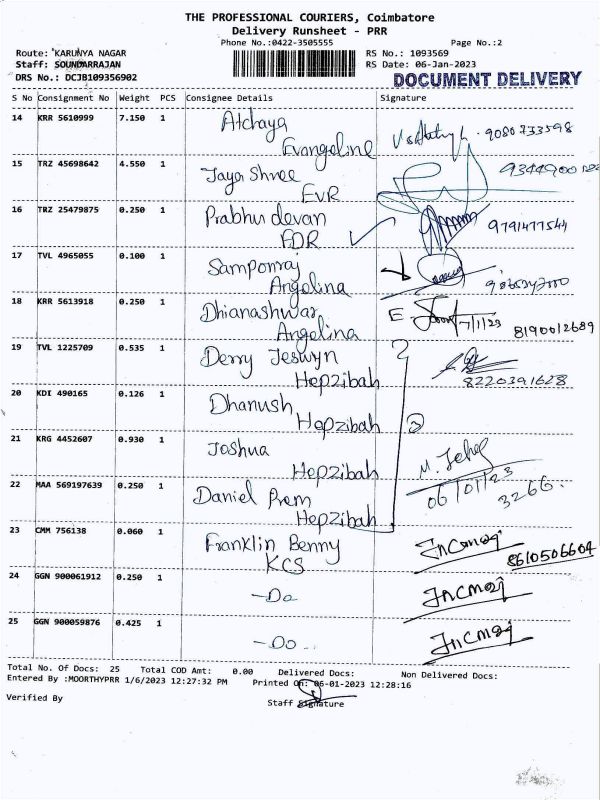 THE PROFESSIONAL COURIERS, Coimbatore
Delivery Runsheet - PRR
Phone No.:0422-3505555 Page No.:2
Route: KARUNYA NAGAR RS No.: 1093569
Staff: SOUNDARRAJAN RS Date: 06-Jan-2023
DRS No.: DCJB109356902 DOCUMENT DELIVERY
S No Consignment No Weight PCS Consignee Details Signature
14 KRR 5610999 7.150 1 Atchaya 9080733598
Evangeline
15 TRZ 45698642 4.550 1 Jaya Shree
EVR
16 TRZ 25479875 0.250 1 Prabhu devan 9791477544
EDR
17 TVL 4965055 0.100 1 Samponraj
Angelina
18 KRR 5613918 0.250 1 Dhianashwar E 7/1/23
Angelina 8190012689
19 TVL 1225709 0.535 1 Derry Jeswyn
Hepzibah 8220391628
20 KDI 490165 0.126 1 Dhanush
Hepzibah
21 KRG 4452607 0.930 1 Joshua
Hepzibah
22 MAA 569197639 0.250 1 Daniel Prem 06/01/23
Hepzibah 3266
23 CMM 756138 0.060 1 Franklin Benny
KCS 8610506604
24 GGN 900061912 0.250 1 -Do
25 GGN 900059876 0.425 1 -Do..
Total No. Of Docs: 25 Total COD Amt: 0.00 Delivered Docs: Non Delivered Docs:
Entered By :MOORTHYPRR 1/6/2023 12:27:32 PM Printed On: 06-01-2023 12:28:16
Verified By Staff Signature